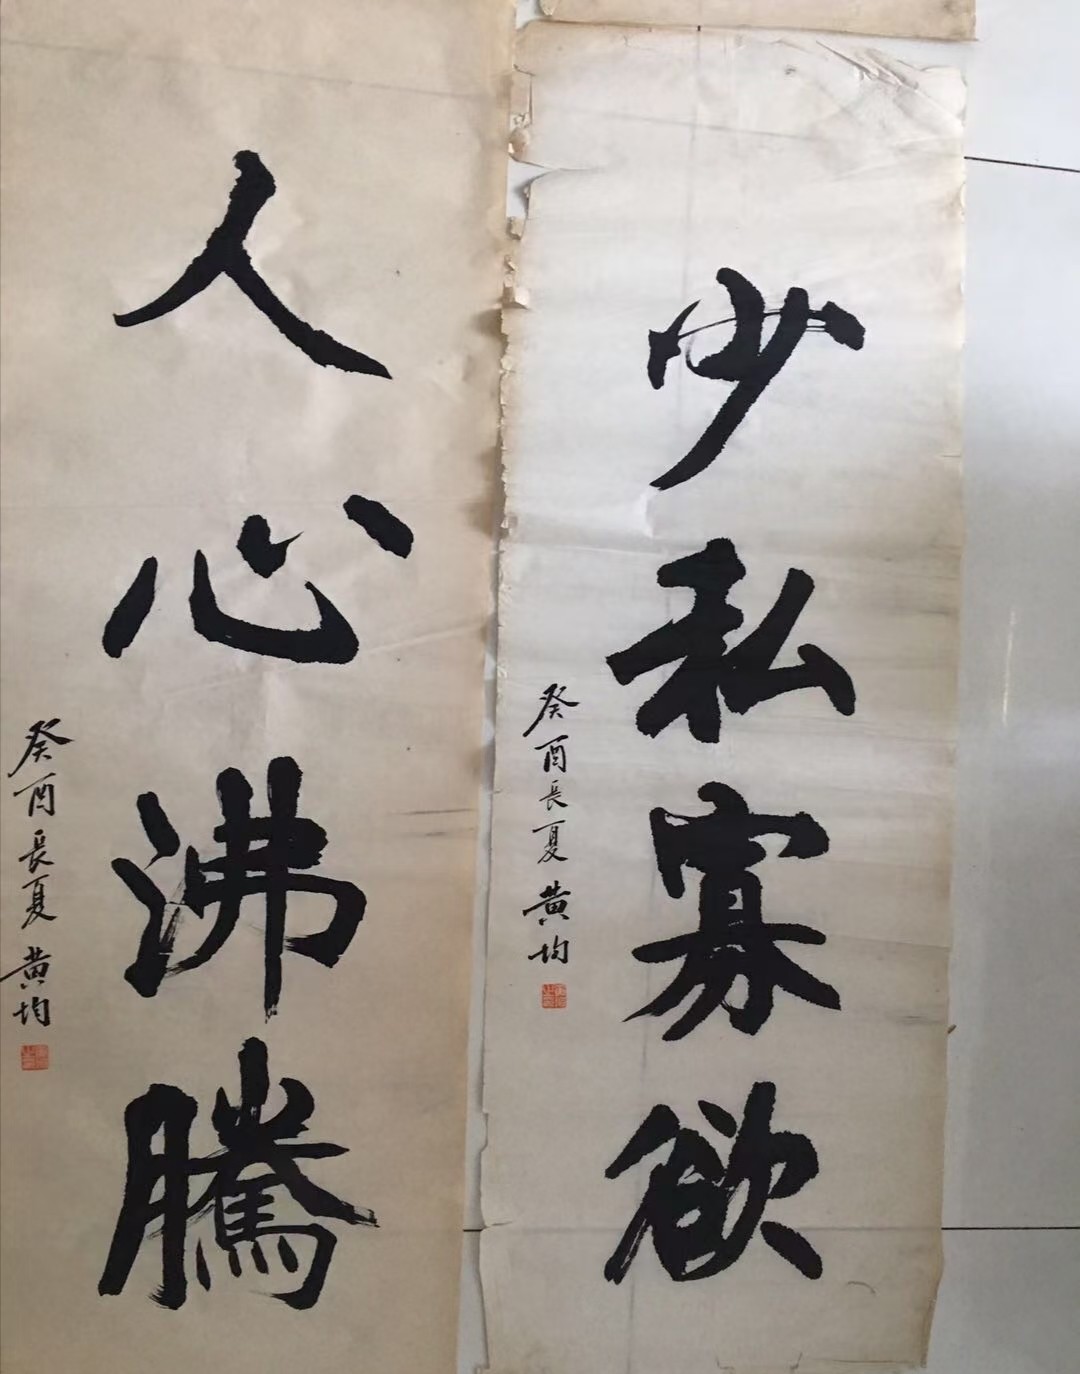 少私寡欲
癸酉長夏 黄均
人心沸騰
癸酉長夏 黄均